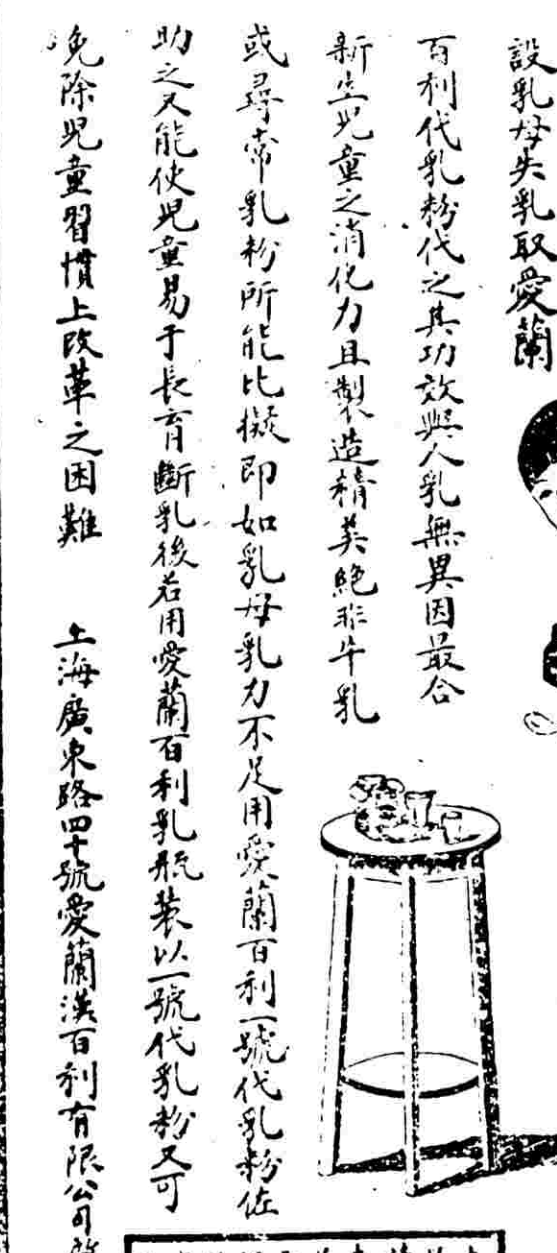 設乳母失乳取愛蘭
百利代乳粉代之其功效與人乳無異因最合
新生兒童之消化力且製造精美絕非牛乳
或尋常乳粉所能比擬即如乳母乳力不足用愛蘭百利一號代乳粉佐
助之又能使兒童易于長育斷乳後若用愛蘭百利乳瓶裝以一號代乳粉又可
免除兒童習慣上改革之困難
上海廣東路四十號愛蘭漢百利有限公司啟